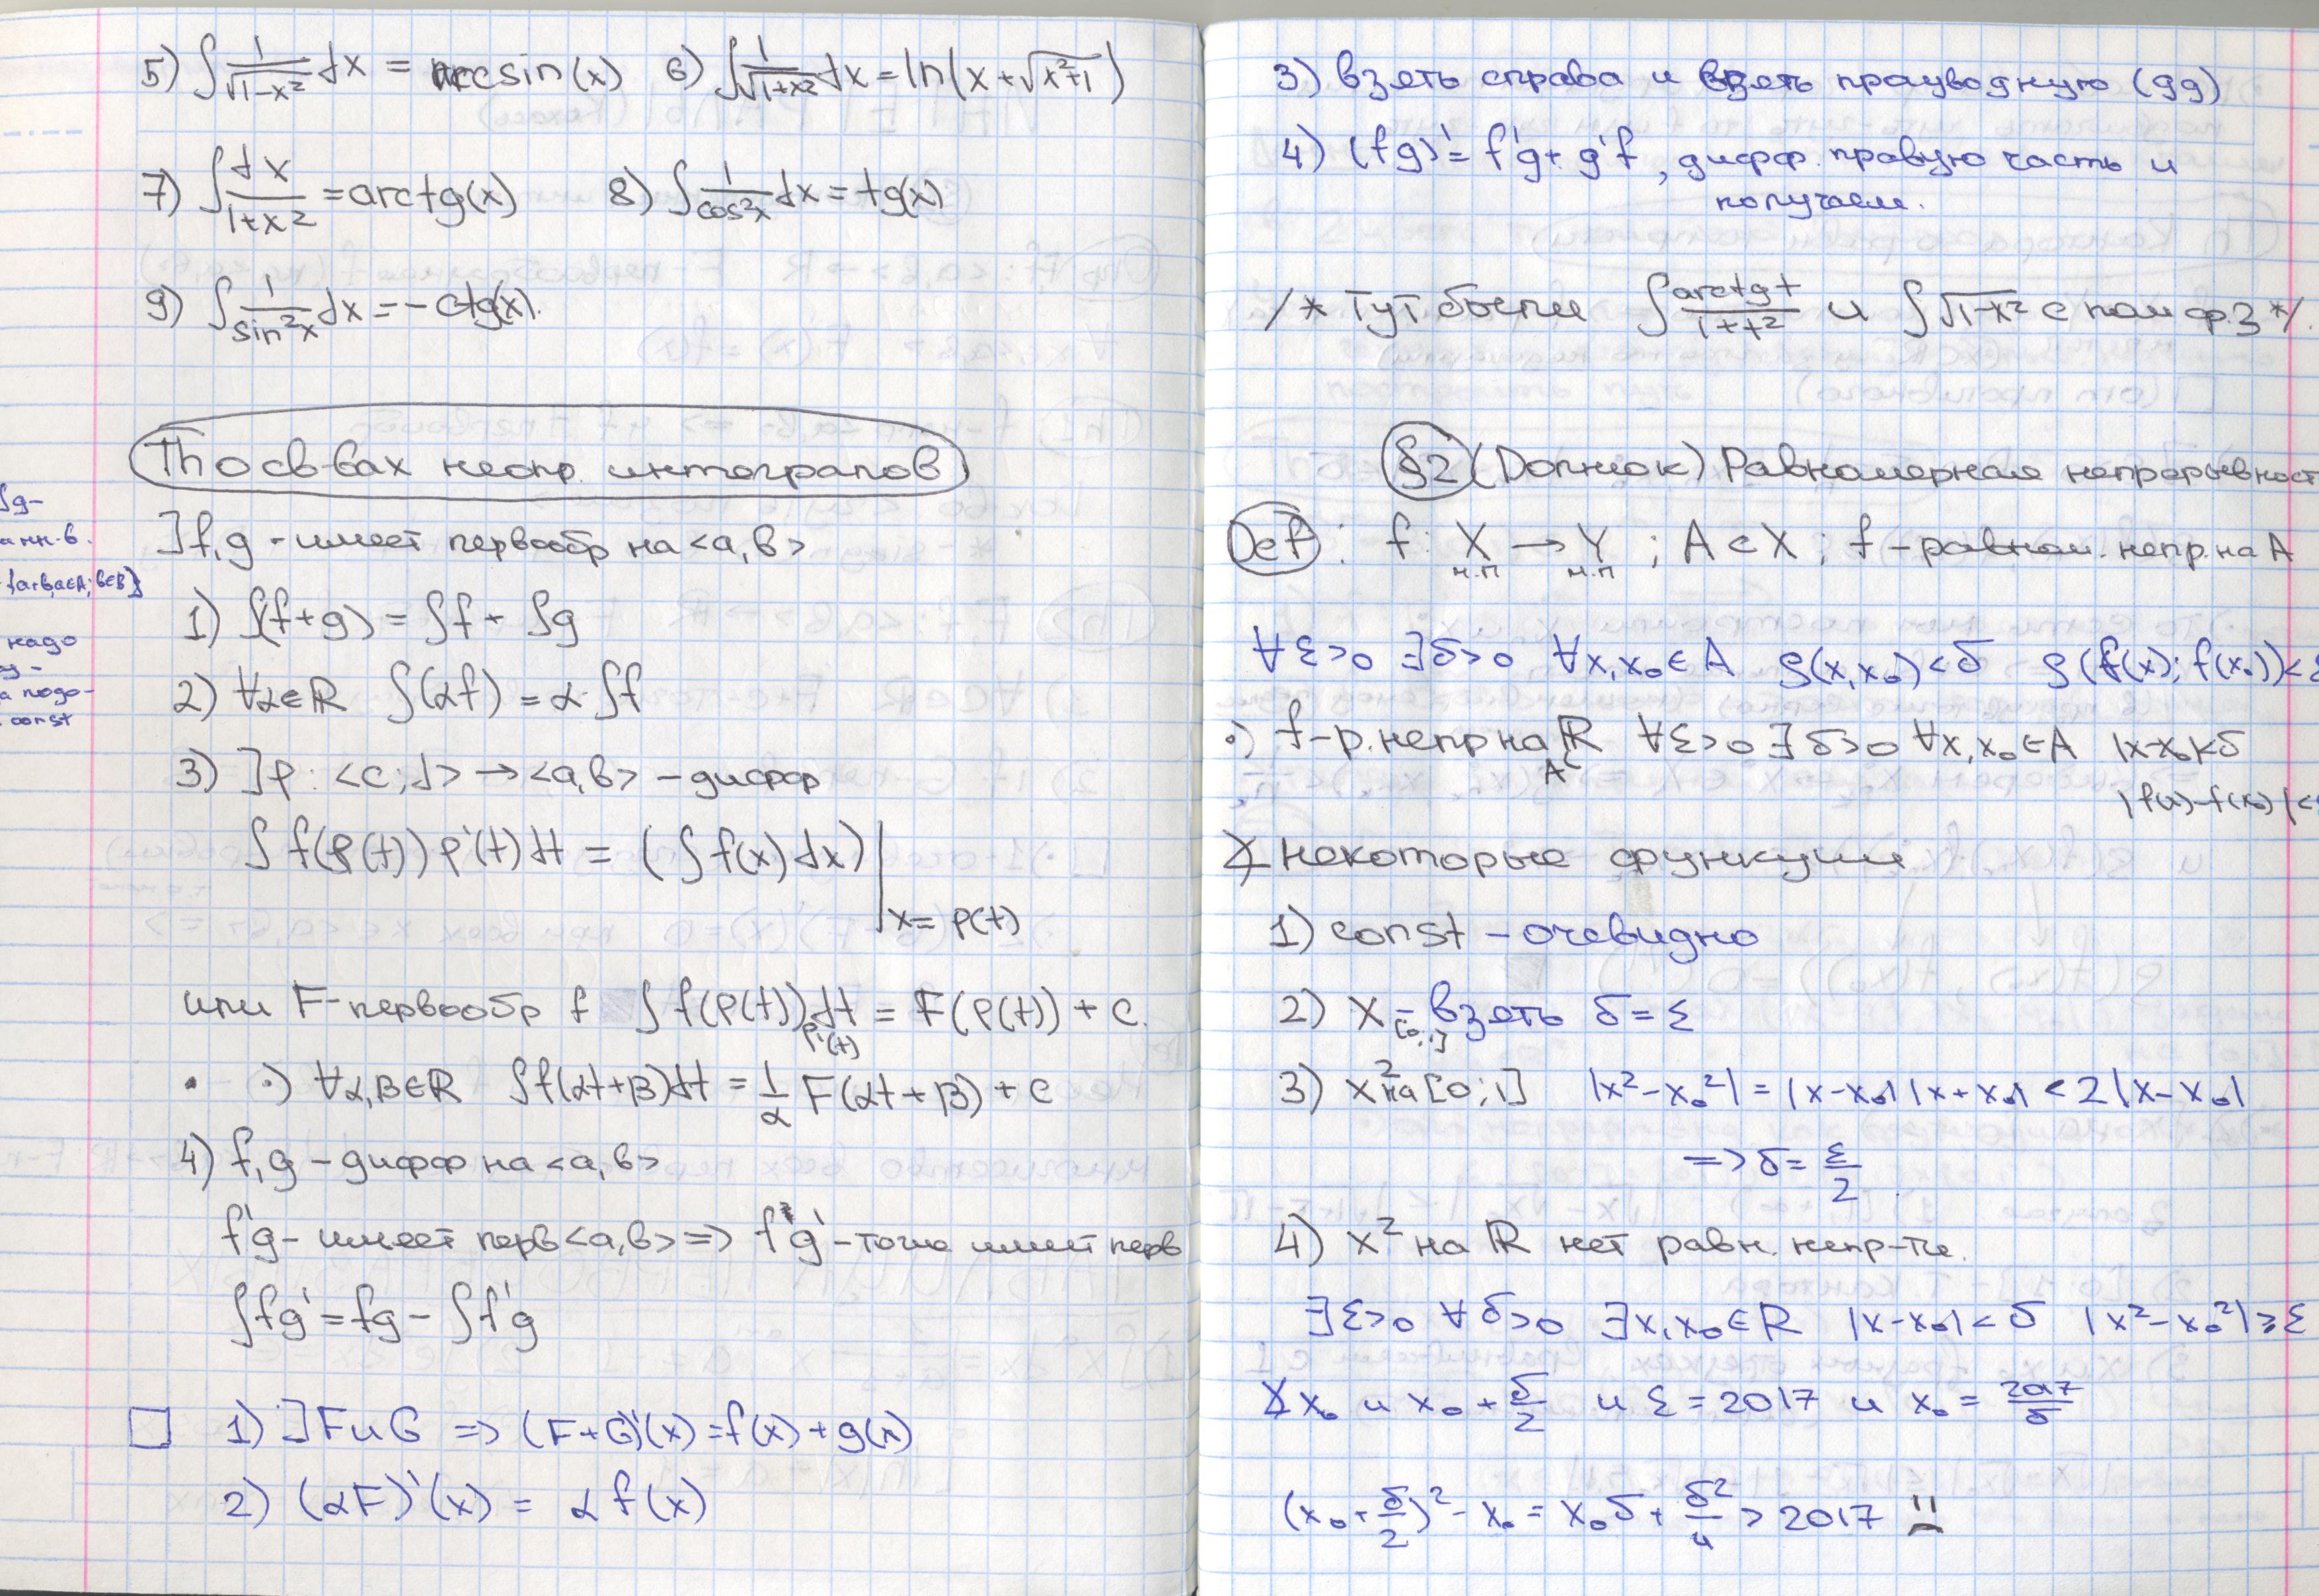 5) ∫ 1/√(1-x²) dx = arcsin(x) 6) ∫ 1/√(1+x²) dx = ln(x+√(x²+1))
7) ∫ dx/(1+x²) = arctg(x) 8) ∫ 1/cos²x dx = tg(x)
9) ∫ 1/sin²x dx = -ctg(x).
Th о св-вах неопр. интегралов
∫g-
анн-в.
{a+b, a∈A; b∈B}
надо
а подо-
const
]f,g - имеет первообр на <a,b>
1) ∫(f+g) = ∫f + ∫g
2) ∀α∈ℝ ∫(αf) = α·∫f
3) ]φ: <c;d> → <a,b> - дифф
∫ f(φ(t)) φ'(t) dt = (∫ f(x) dx) | x = φ(t)
или F-первообр f ∫ f(φ(t)) φ'(t) dt = F(φ(t)) + c.
·) ∀α,β∈ℝ ∫f(αt+β)dt = 1/α F(αt+β) + c
4) f,g - дифф на <a,b>
f'g - имеет перв <a,b> => fg' - тоже имеет перв
∫fg' = fg - ∫f'g
□ 1) ]F и G => (F+G)'(x) = f(x) + g(x)
2) (αF)'(x) = αf(x)
3) взять справа и взять производную (gg)
4) (fg)' = f'g + g'f, дифф. правую часть и
получаем.
/* Тут были ∫ arctg t/(1+t²) и ∫√(1-x²) с пом ф.3 */.
§2 (Должок) Равномерная непрерывност
Def: f: X → Y ; A⊂X ; f - равном. непр. на A
м.п м.п
∀ε>0 ∃δ>0 ∀x,x₀∈A ρ(x,x₀)<δ ρ(f(x); f(x₀))<ε
·) f - р. непр на A⊂ℝ ∀ε>0 ∃δ>0 ∀x,x₀∈A |x-x₀|<δ
|f(x)-f(x₀)|<
∡ некоторые функции
1) const - очевидно
2) x - взять δ=ε
[0,1]
3) x² на [0;1] |x²-x₀²| = |x-x₀||x+x₀| < 2|x-x₀|
=> δ = ε/2.
4) x² на ℝ нет равн. непр-ти.
∃ε>0 ∀δ>0 ∃x,x₀∈ℝ |x-x₀|<δ |x²-x₀²|≥ε
∡ x₀ и x₀ + δ/2 и ε = 2017 и x₀ = 2017/δ
(x₀+δ/2)² - x₀ = x₀δ + δ²/4 > 2017